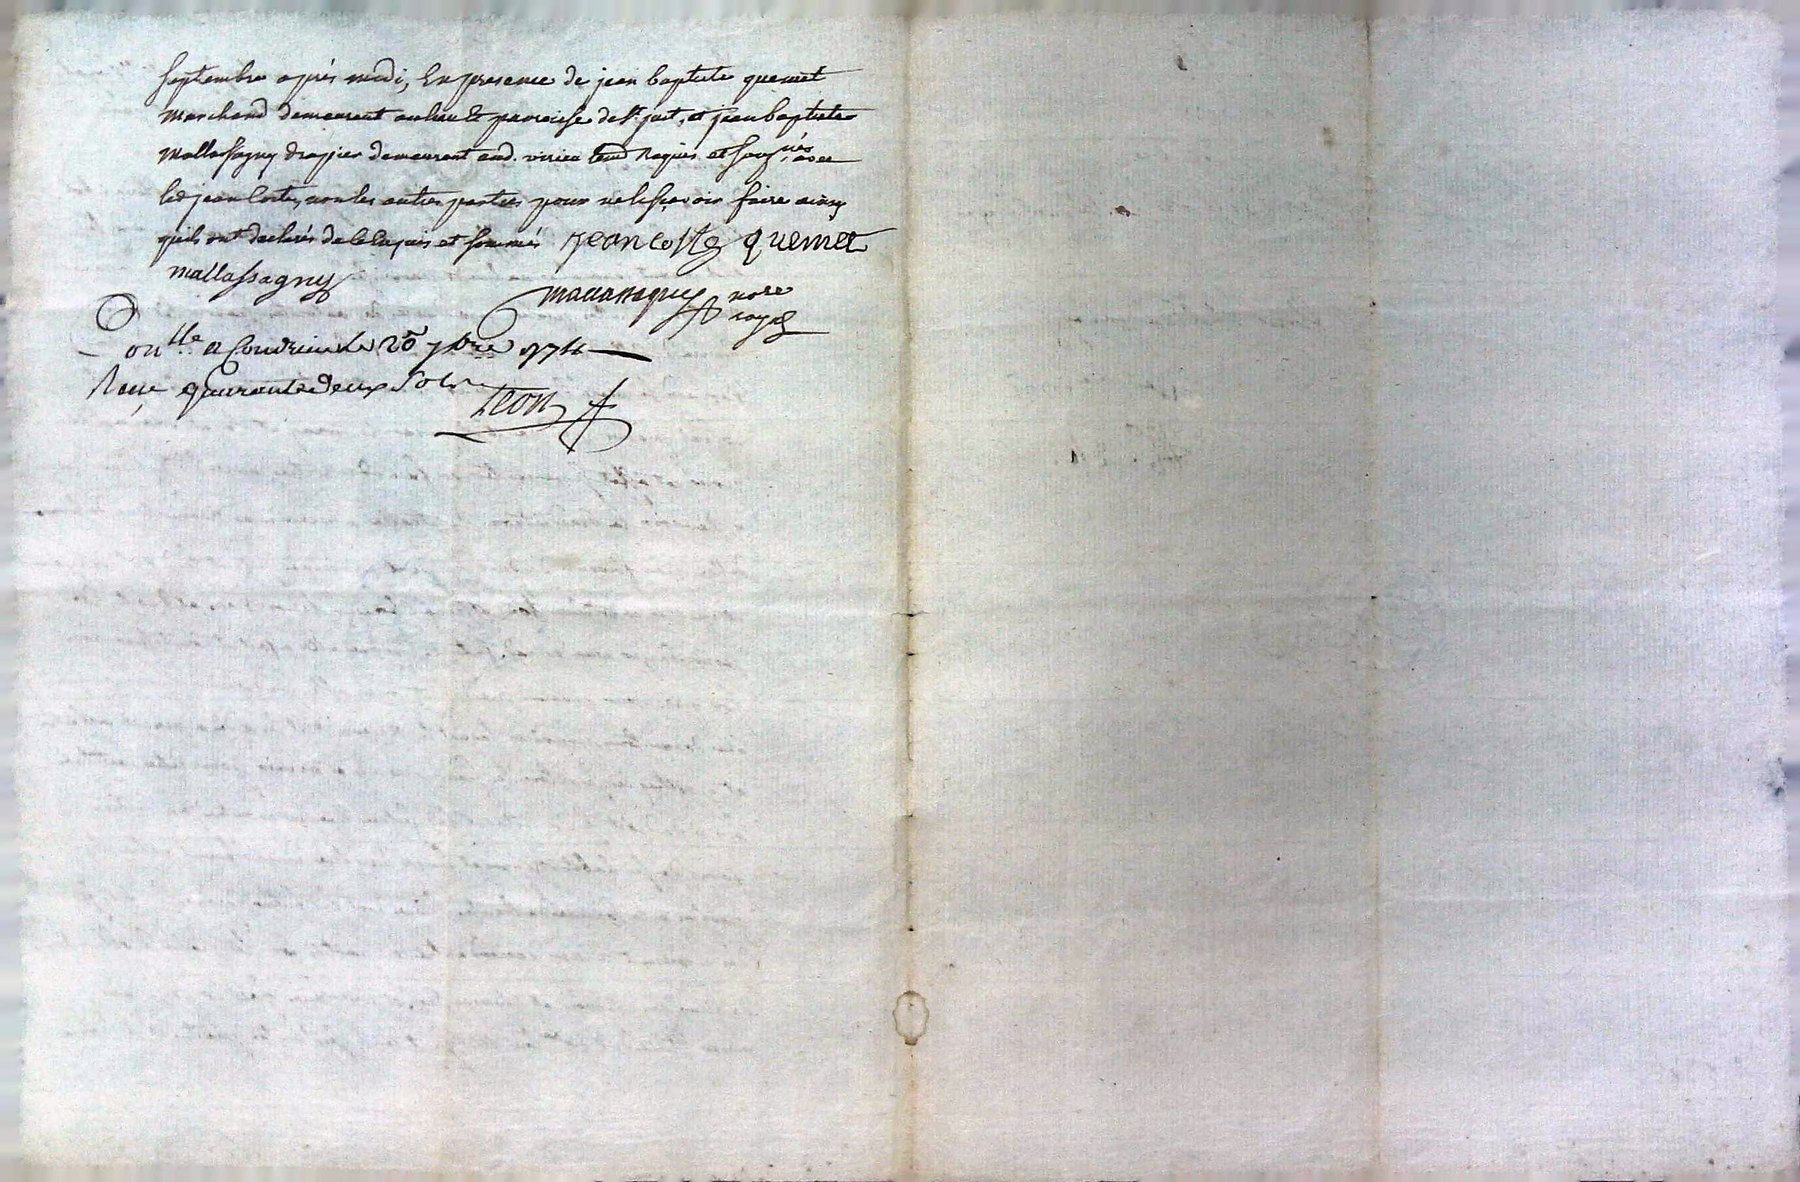 septembre après midi, En presence de jean baptiste quemet
marchand demeurant au lieu & parroisse de St just, et jean baptiste
mallassagny drapier demeurant aud. virieu tem̃. Requis et soussignés avec
led jean Coste, non les autres parties pour ne le sçavoir faire ainsy
qu'ils ont declarés de ce enquis et sommés jean coste quemet
mallassagny
mallassagny nore
royal
Con.lle a Condrieu le 20 7bre 174
Reçu quarante deux sols
Leon